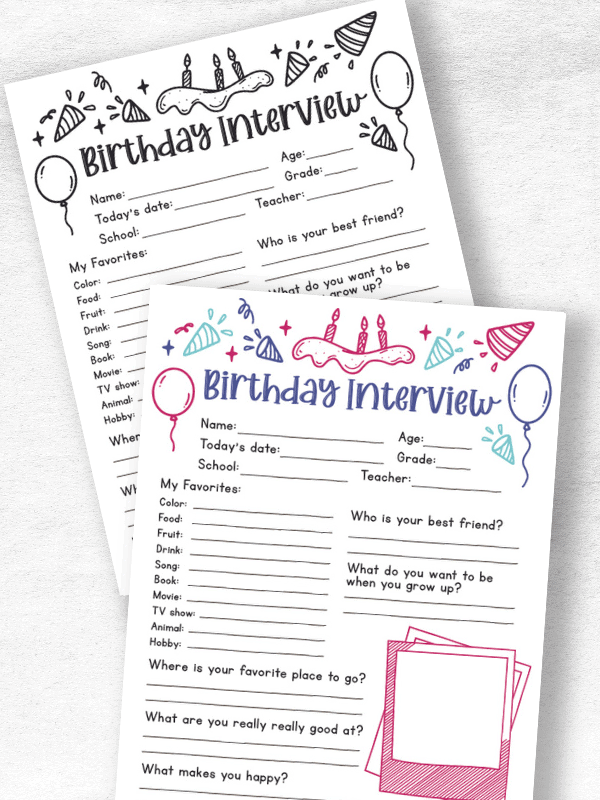 Birthday Interview
Name: Age:
Today's date: Grade:
School: Teacher:
My Favorites:
Color:
Food:
Fruit:
Drink:
Song:
Book:
Movie:
TV show:
Animal:
Hobby:
Who is your best friend?
What do you want to be
grow up?
Wher
Wh
Birthday Interview
Name: Age:
Today's date: Grade:
School: Teacher:
My Favorites:
Color:
Food:
Fruit:
Drink:
Song:
Book:
Movie:
TV show:
Animal:
Hobby:
Who is your best friend?
What do you want to be
when you grow up?
Where is your favorite place to go?
What are you really really good at?
What makes you happy?